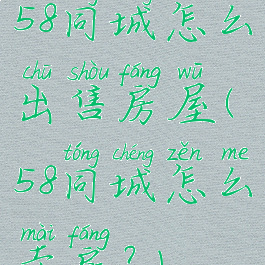 58同城怎么
chū shòu fáng wū
出售房屋(
tóng chéng zěn me
58同城怎么
mài fáng
卖房?)